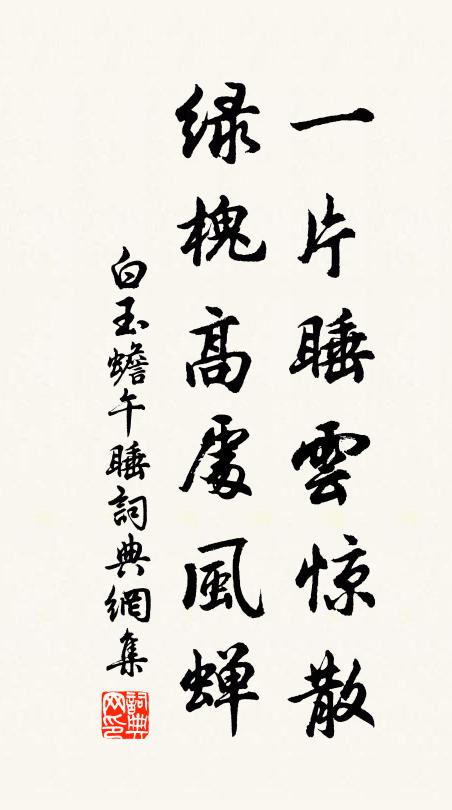 一片睡雲惊散
绿槐高處風蝉
白玉蟾午睡詞典網集
詞典网印